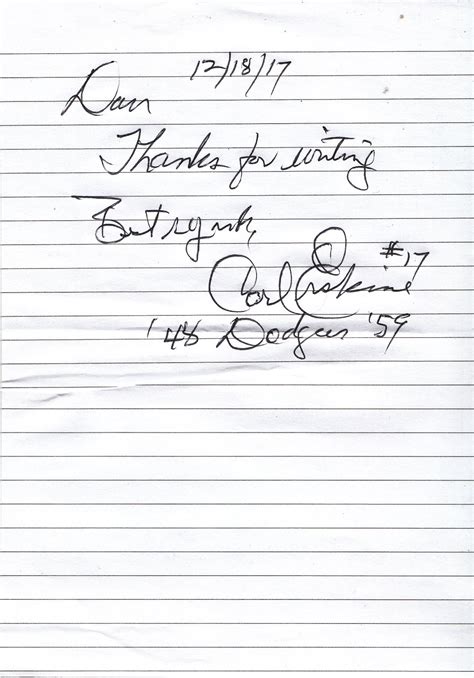 12/18/17
Dan
Thanks for writing
Best regards,
#17
Carl Erskine
'48 Dodgers '59